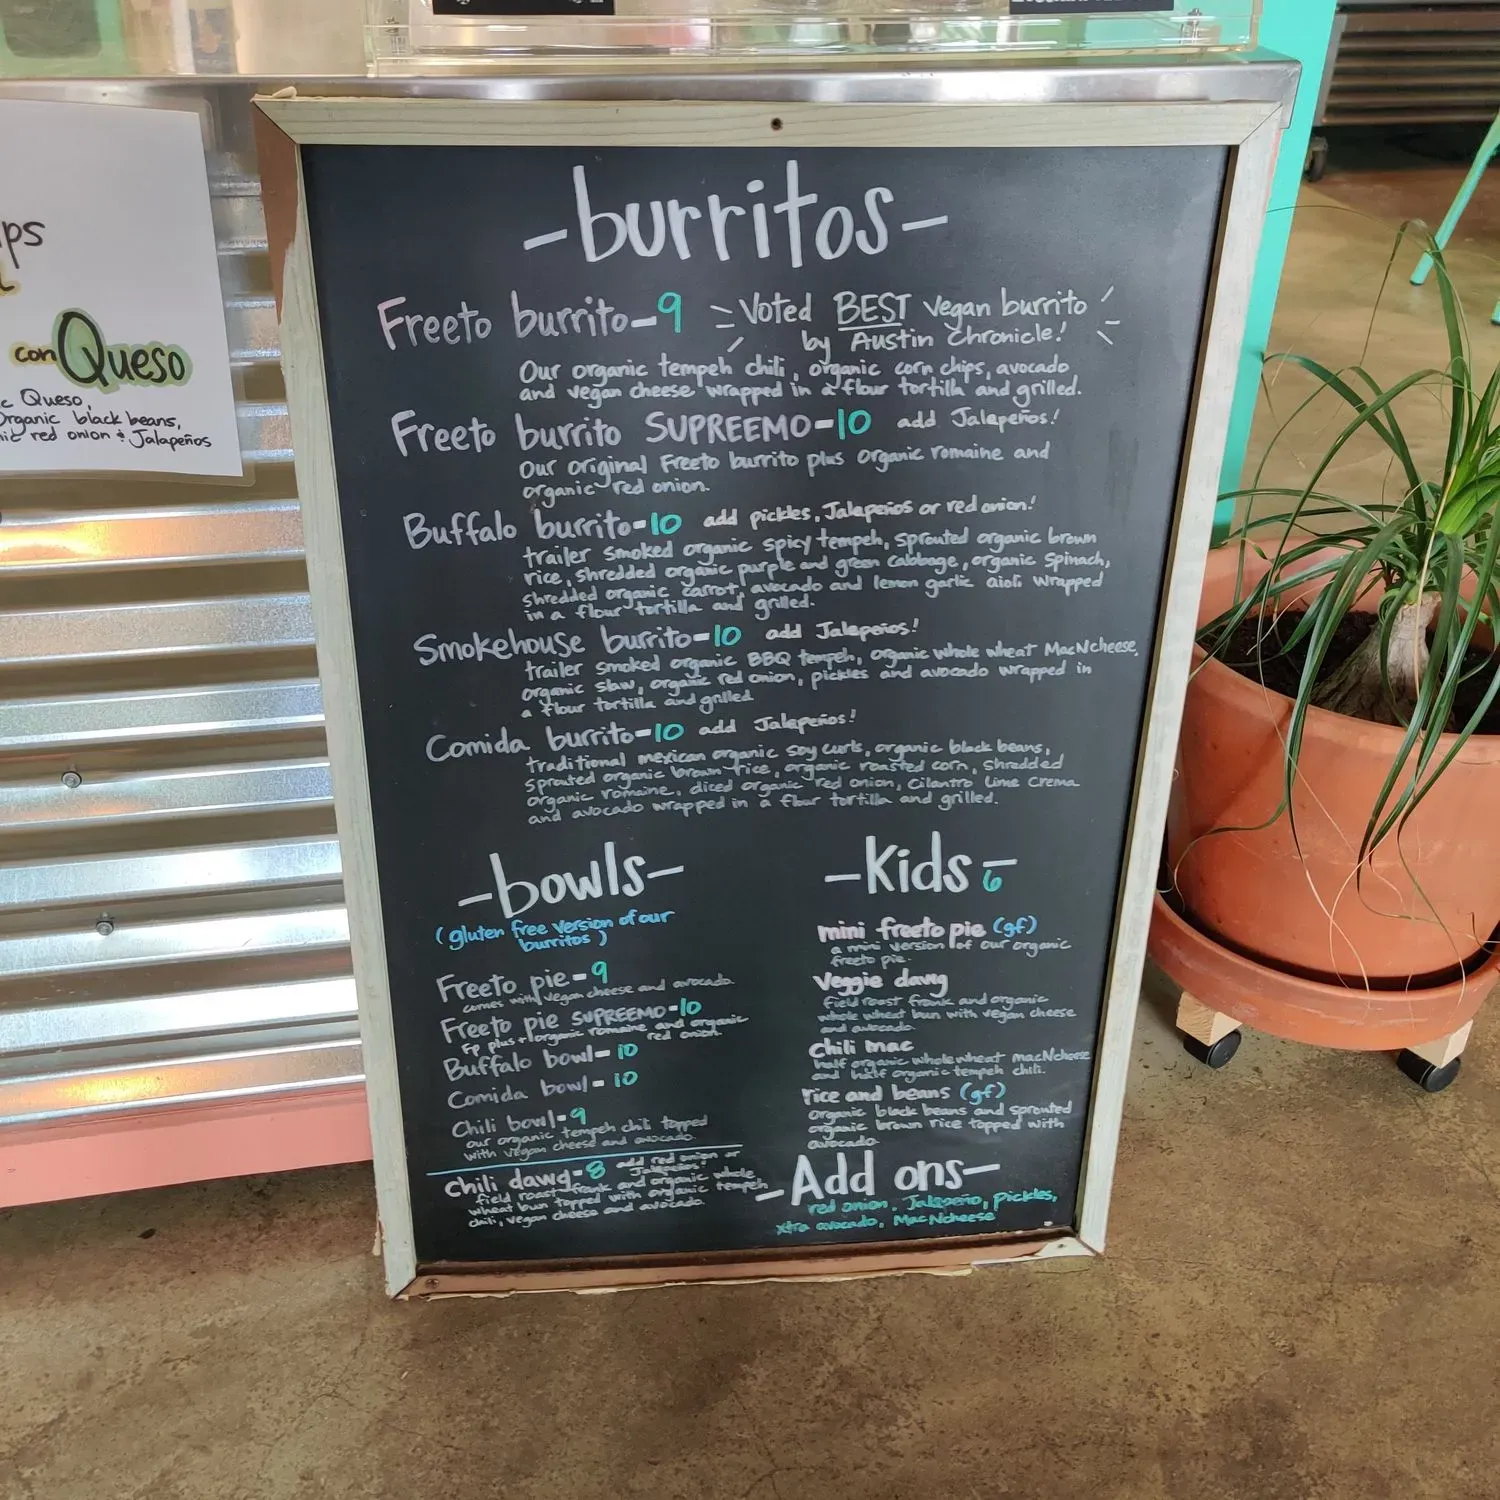 ps
con Queso
c Queso,
Organic black beans,
ic red onion & Jalapeños
-burritos-
Freeto burrito-9 Voted BEST vegan burrito
by Austin Chronicle!
Our organic tempeh chili, organic corn chips, avocado
and vegan cheese wrapped in a flour tortilla and grilled.
Freeto burrito SUPREEMO-10 add Jalapeños!
Our original Freeto burrito plus organic romaine and
organic red onion.
Buffalo burrito-10 add pickles, Jalapeños or red onion!
trailer smoked organic spicy tempeh, sprouted organic brown
rice, shredded organic purple and green cabbage, organic spinach,
shredded organic carrot, avocado and lemon garlic aioli wrapped
in a flour tortilla and grilled.
Smokehouse burrito-10 add Jalapeños!
trailer smoked organic BBQ tempeh, organic whole wheat MacNcheese,
organic slaw, organic red onion, pickles and avocado wrapped in
a flour tortilla and grilled
Comida burrito-10 add Jalapeños!
traditional mexican organic soy curls, organic black beans,
sprouted organic brown rice, organic roasted corn, shredded
organic romaine, diced organic red onion, cilantro lime crema
and avocado wrapped in a flour tortilla and grilled.
-bowls-
(gluten free version of our
burritos)
Freeto pie-9
comes with vegan cheese and avocado.
Freeto pie SUPREEMO-10
Fp plus+organic romaine and organic
red onion
Buffalo bowl-10
Comida bowl-10
Chili bowl-9
our organic tempeh chili topped
with vegan cheese and avocado
chili dawg-8 add red onion or
Jalapeños!
field roast frank and organic whole
wheat bun topped with organic tempeh
chili, vegan cheese and avocado.
-Kids- 6
mini freeto pie (gf)
a mini version of our organic
freeto pie.
Veggie dawg
field roast frank and organic
whole wheat bun with vegan cheese
and avocado.
chili mac
half organic whole wheat macNcheese
and half organic tempeh chili.
rice and beans (gf)
organic black beans and sprouted
organic brown rice topped with
avocado
-Add ons-
red onion, Jalapeño, pickles,
xtra avocado, MacNcheese